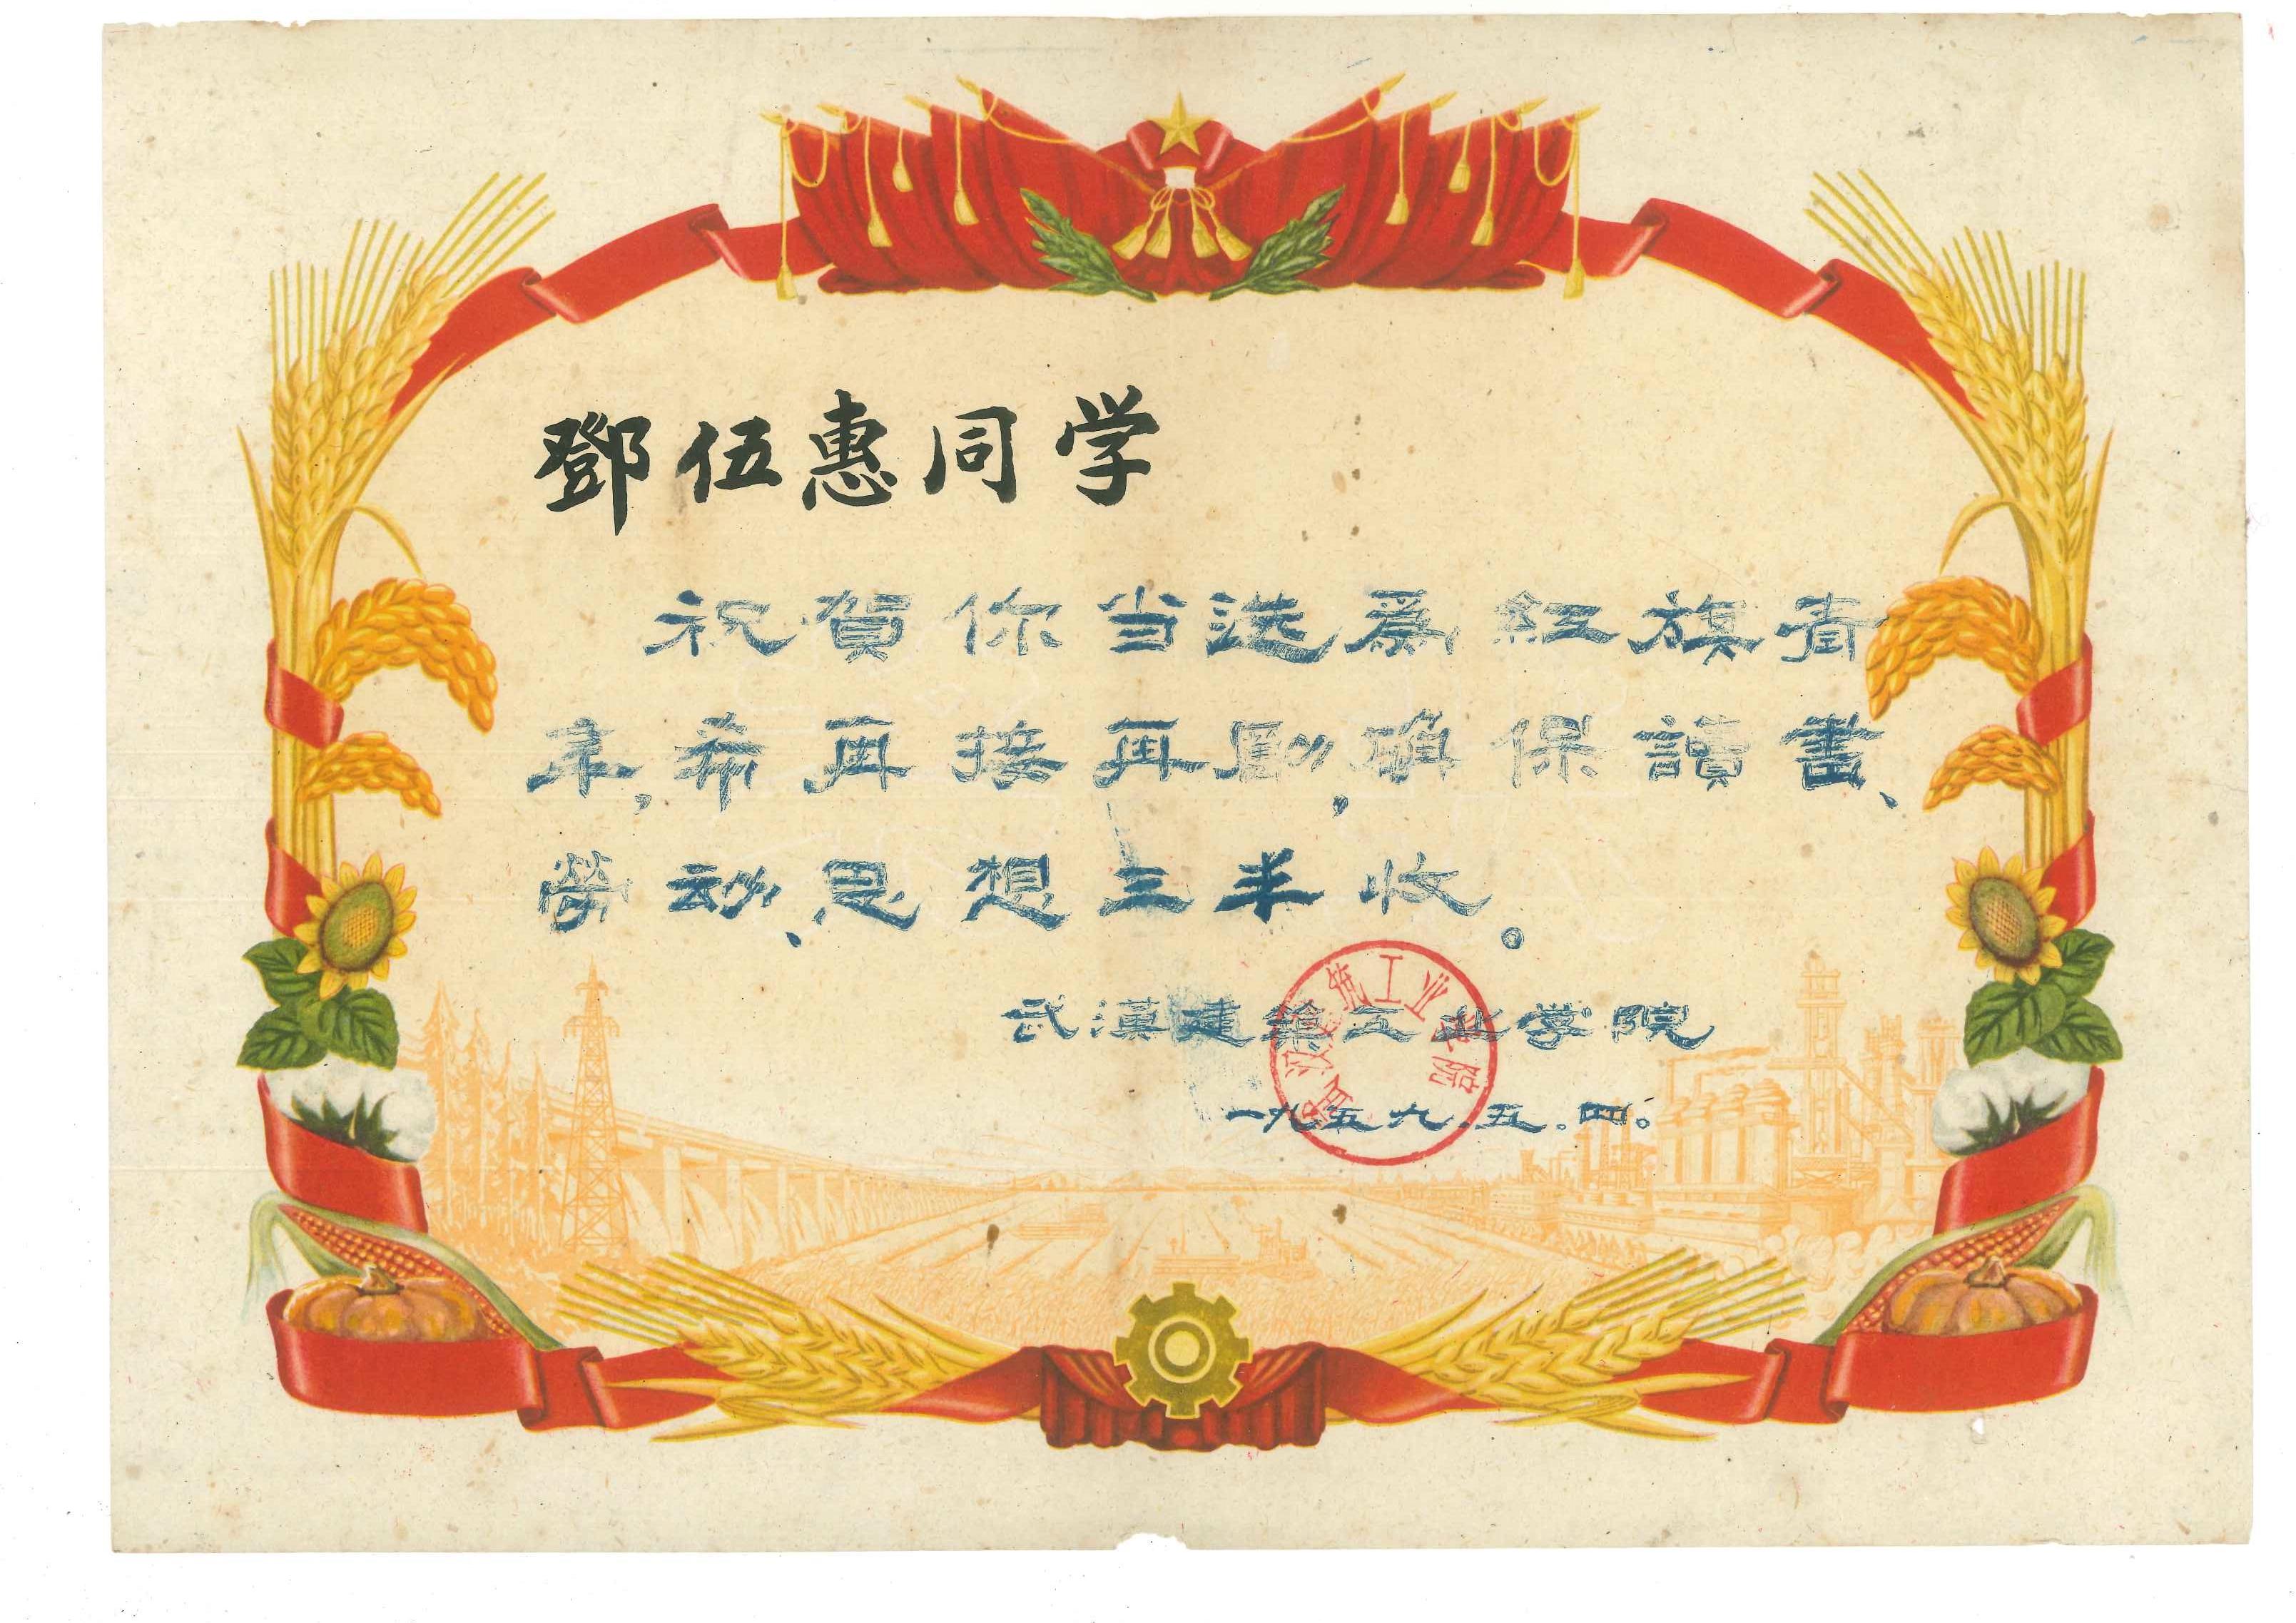 鄧伍惠同学
祝賀你当选爲紅旗青
年,希再接再励,确保讀書、
勞动、思想三丰收。
武漢建築工业学院
一九五九.五.四。
武汉建筑工业学院